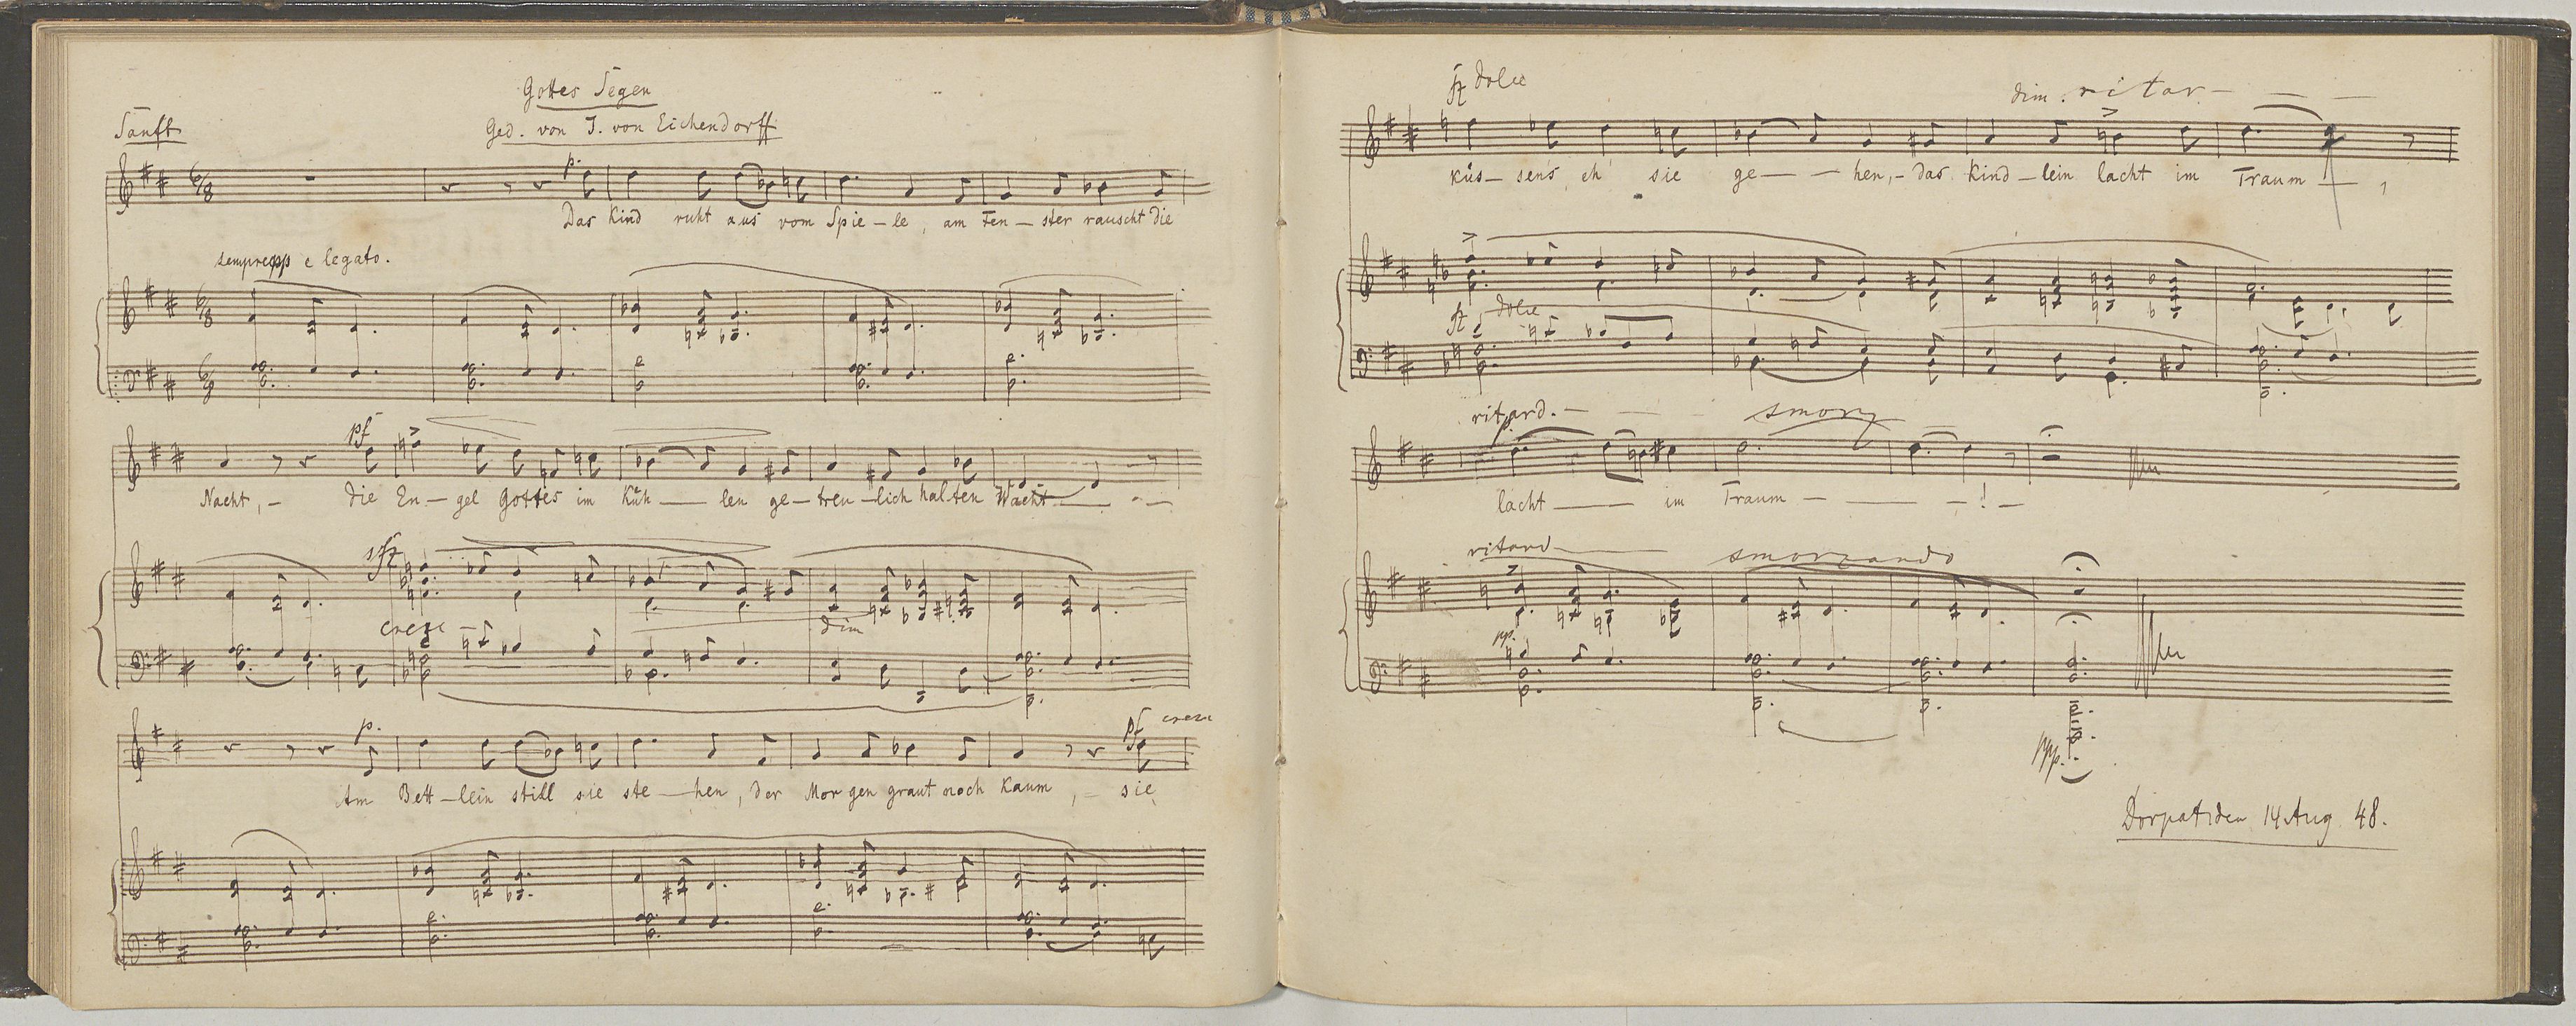 Gottes Segen
Sanft
Ged. von J. von Eichendorff
p.
Das Kind ruht aus vom Spie-le, am Fen-ster rauscht die
sempre pp e legato.
pf
Nacht,- die En-gel Gottes im Küh-len ge-treu-lich halten Wacht
sfz
cresc dim
p. pf cresc
Am Bett-lein still sie ste-hen, der Morgen graut noch kaum,- sie
fz dolce dim. ritar-
küs-sen's eh' sie ge-hen,- das Kind-lein lacht im Traum-,
fz dolce
ritard. smorz
p.
lacht im Traum-!-
ritard smorzando
pp.
ppp.
Dorpat den 14 Aug 48.